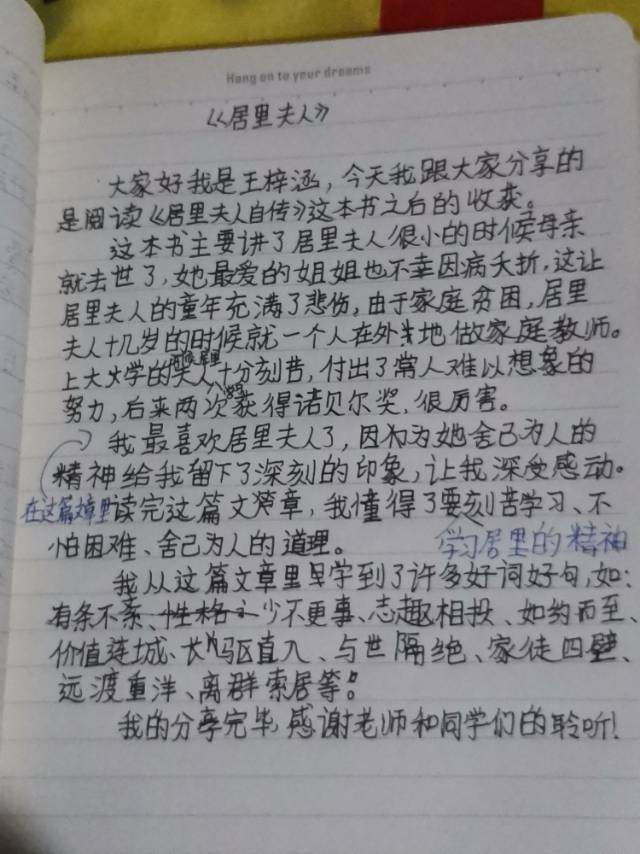 Hang on to your dreams
《居里夫人》
大家好我是王梓涵，今天我跟大家分享的
是阅读《居里夫人自传》这本书之后的收获。
这本书主要讲了居里夫人很小的时候母亲
就去世了，她最爱的姐姐也不幸因病夭折，这让
居里夫人的童年充满了悲伤，由于家庭贫困，居里
夫人十几岁的时候就一个人在外地做家庭教师。
上大学的居里夫人十分刻苦，付出了常人难以想象的
努力，后来两次获得诺贝尔奖，很厉害。
我最喜欢居里夫人了，因为她舍己为人的
精神给我留下了深刻的印象，让我深受感动。
在这篇文章里读完这篇文章，我懂得了要刻苦学习、不
怕困难、舍己为人的道理。学习居里的精神
我从这篇文章里早学到了许多好词好句，如：
有条不紊、性格、少不更事、志趣相投、如约而至、
价值连城、长驱直入、与世隔绝、家徒四壁、
远渡重洋、离群索居等。
我的分享完毕，感谢老师和同学们的聆听！